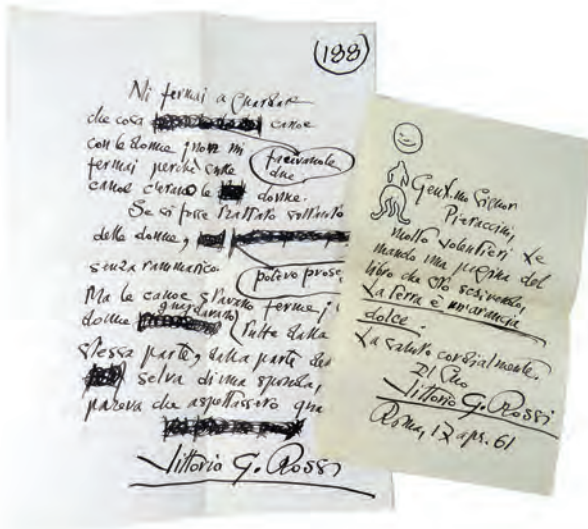 (188)
Mi fermai a guardare
che cosa canoe
con le donne; non mi
facivano le
due
fermai perchè sulle
canoe c'erano le donne.
Se si fosse trattato soltanto
delle donne,
potevo prose
senza rammarico.
Ma le canoe stavano ferme;
guardavano
donne tutte dalla
stessa parte, dalla parte
selva di una sponda,
pareva che aspettassero qua
Vittorio G. Rossi
Gent.mo Signor
Pieraccini,
molto volentieri Le
mando una pagina del
libro che sto scrivendo,
La Terra è un'arancia
dolce.
La saluto cordialmente.
Il Suo
Vittorio G. Rossi
Roma, 17 apr. 61